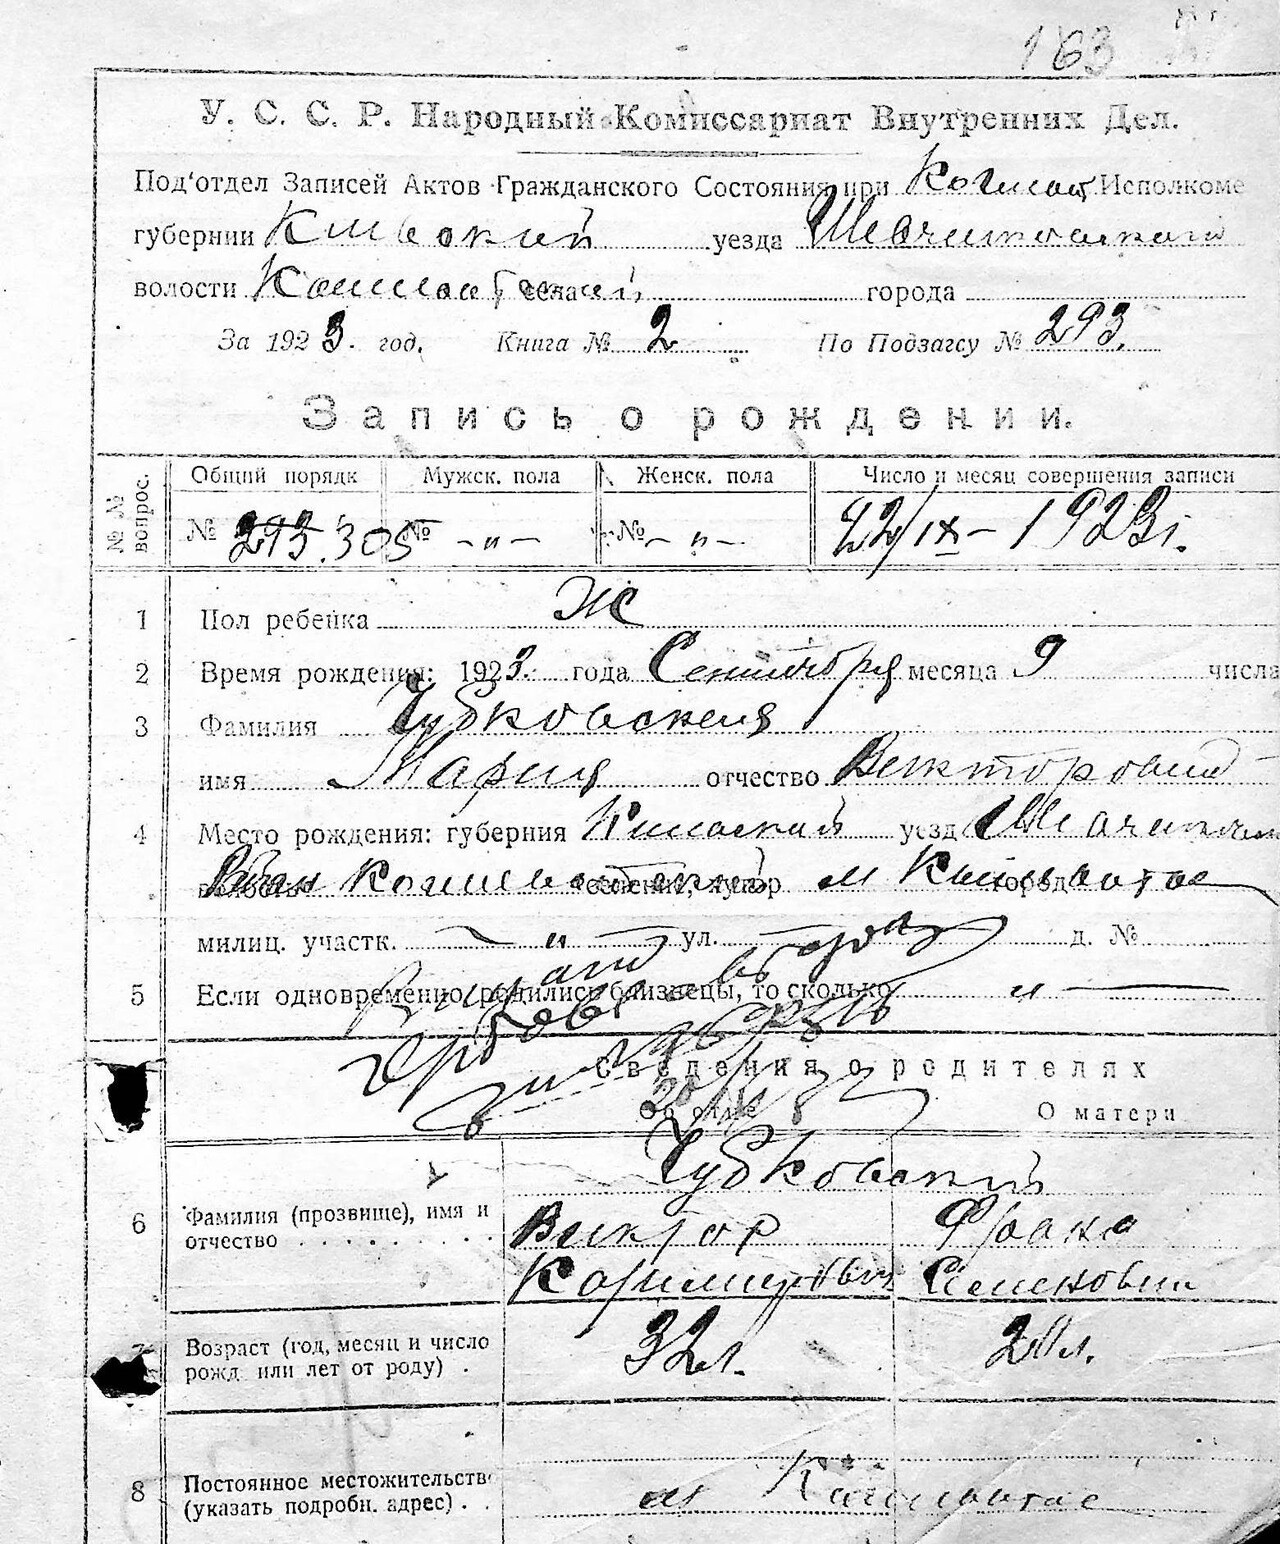 163
У. С. С. Р. Народный Комиссариат Внутренних Дел.
Под'отдел Записей Актов Гражданского Состояния при Кошоват. Исполкоме
губернии Киевской уезда
волости Кошоватской села города
За 1923. год. Книга № 2 По Подзагсу № 293.
Запись о рождении.
№ № вопрос. Общий порядк Мужск. пола Женск. пола Число и месяц совершения записи
№ 293. 305 № -"- № -"- 22/IX - 1923г.
1 Пол ребенка Ж
2 Время рождения: 1923. года Сентября месяца 9 числа
3 Фамилия Чубковская
имя Мария отчество
4 Место рождения: губерния Киевской уезд
м Кошоватое
милиц. участк. — " — ул. — д. №
5 Если одновременно родились близнецы, то сколько " —
Сведения о родителях
Об отце О матери
Чубковский
6 Фамилия (прозвище), имя и отчество Виктор
7 Возраст (год, месяц и число рожд или лет от роду) . 32 л. 20 л.
8 Постоянное местожительств (указать подробн. адрес) . . м Кошоватое